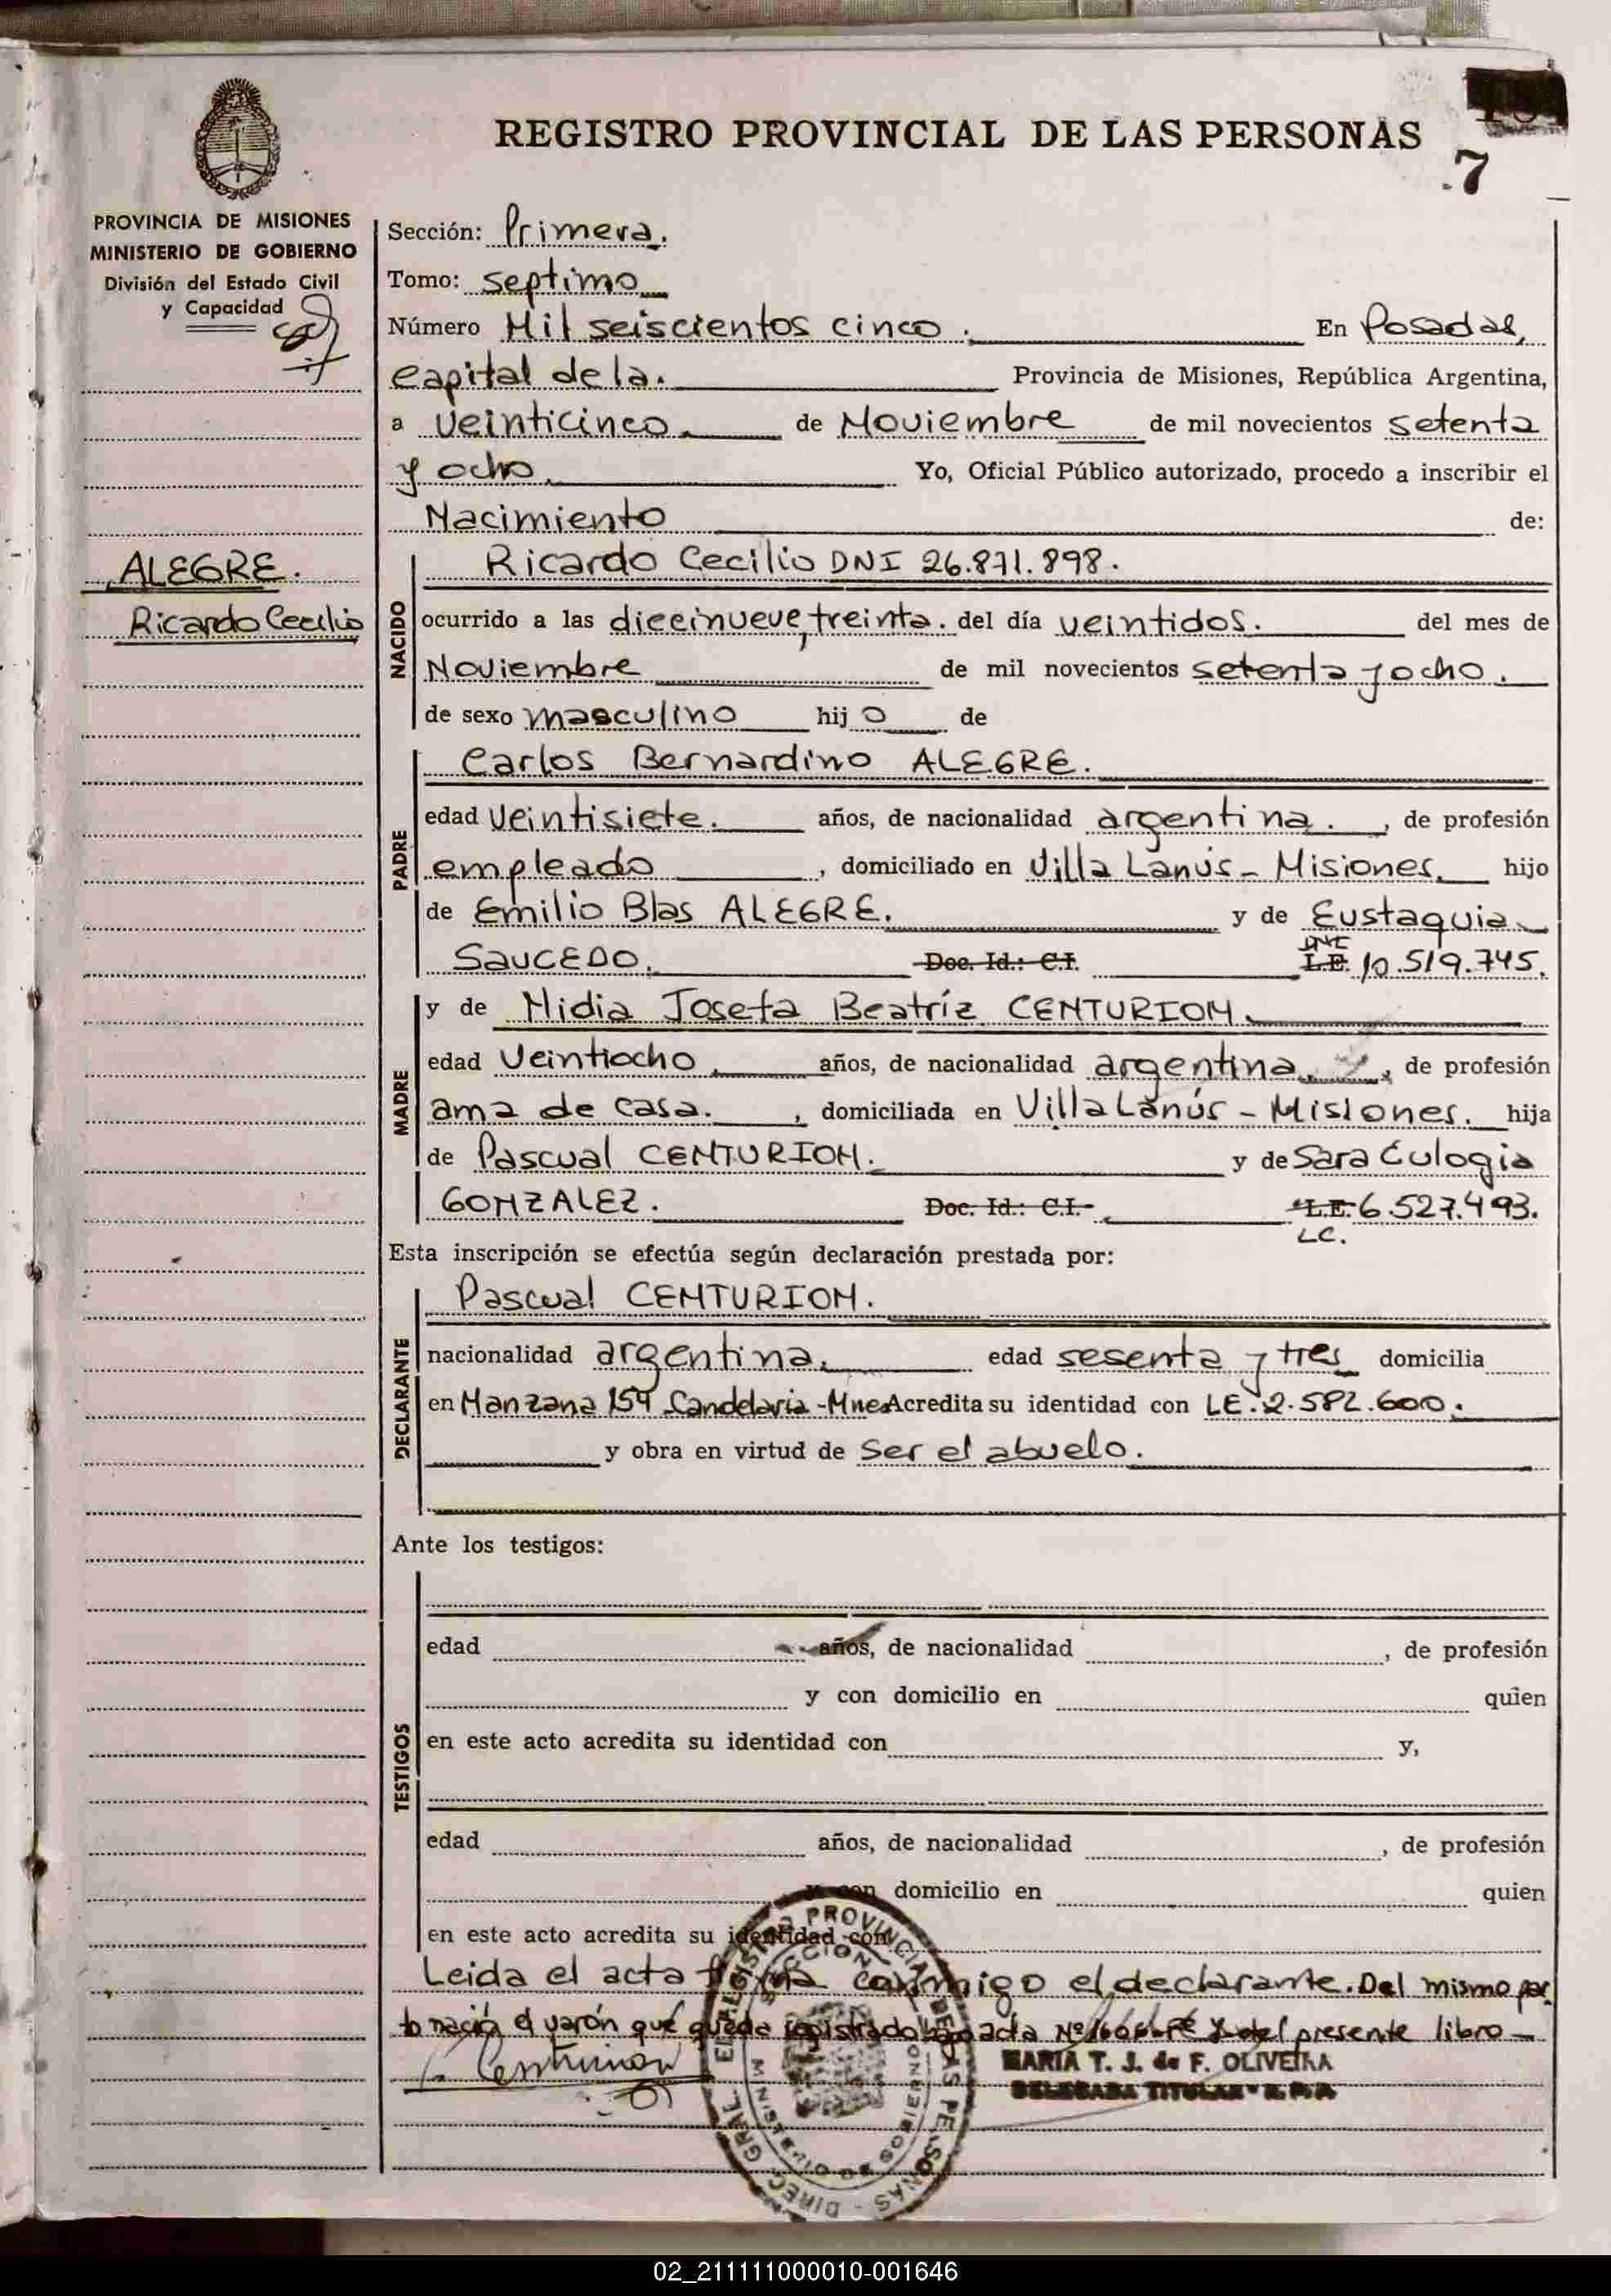 REGISTRO PROVINCIAL DE LAS PERSONAS
7
PROVINCIA DE MISIONES
MINISTERIO DE GOBIERNO
División del Estado Civil
y Capacidad
ALEGRE.
Ricardo Cecilio
Sección: Primera.
Tomo: septimo
Número Mil seiscientos cinco. En Posadas,
capital de la. Provincia de Misiones, República Argentina,
a veinticinco. de Noviembre de mil novecientos setenta
y ocho. Yo, Oficial Público autorizado, procedo a inscribir el
Nacimiento de:
NACIDO
Ricardo Cecilio DNI 26.871.898.
ocurrido a las diecinueve, treinta. del día veintidos. del mes de
Noviembre de mil novecientos setenta y ocho.
de sexo masculino hijo de
PADRE
Carlos Bernardino ALEGRE.
edad veintisiete. años, de nacionalidad argentina. , de profesión
empleado , domiciliado en Villa Lanús - Misiones. hijo
de Emilio Blas ALEGRE. y de Eustaquia
SAUCEDO. Doc. Id.: C.I. L.E. DNI 10.519.745.
MADRE
y de Nidia Josefa Beatríz CENTURION.
edad Veintiocho. años, de nacionalidad argentina. , de profesión
ama de casa. , domiciliada en Villa Lanús - Misiones. hija
de Pascual CENTURION. y de Sara Eulogia
GONZALEZ. Doc. Id.: C.I. L.E. 6.527.493.
LC.
Esta inscripción se efectúa según declaración prestada por:
DECLARANTE
Pascual CENTURION.
nacionalidad argentina. edad sesenta y tres domicilia
en Manzana 154 Candelaria - Mnes Acredita su identidad con LE. 2.582.600.
y obra en virtud de ser el abuelo.
Ante los testigos:
TESTIGOS
edad años, de nacionalidad , de profesión
y con domicilio en quien
en este acto acredita su identidad con y,
edad años, de nacionalidad , de profesión
y con domicilio en quien
en este acto acredita su identidad con
Leida el acta firma conmigo el declarante. Del mismo par
to nació el varón que queda registrado bajo acta Nº del presente libro -
MARIA T. J. de F. OLIVEIRA
DELEGADA TITULAR R. P. P.
DIREC. GRAL. DEL REGISTRO PROVINCIAL DE LAS PERSONAS
MINISTERIO DE GOBIERNO
02_211111000010-001646